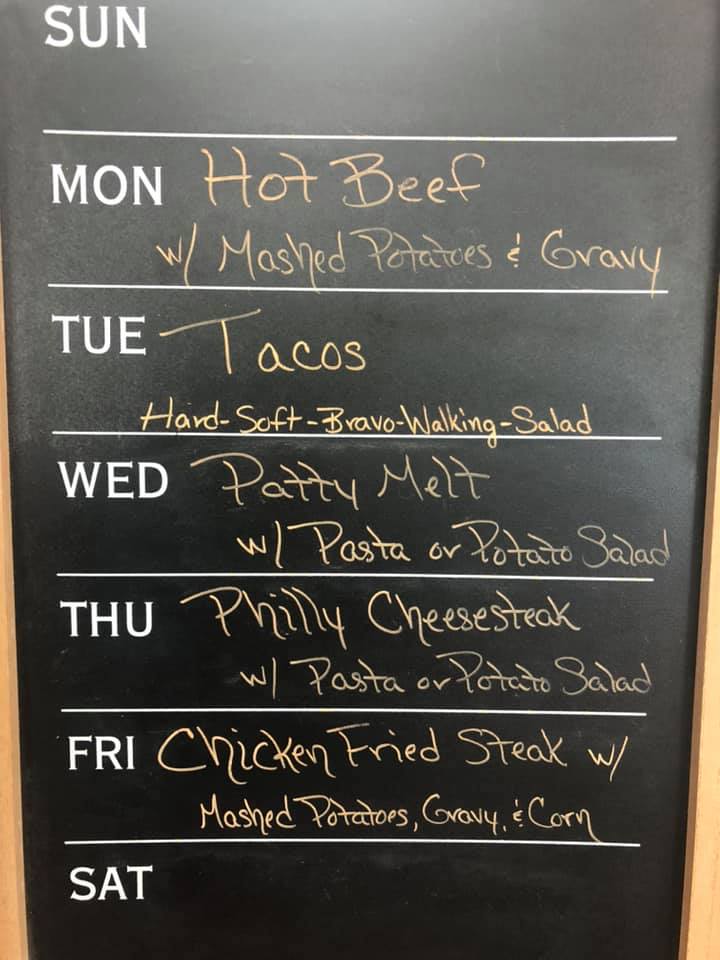 SUN
MON Hot Beef
w/ Mashed Potatoes & Gravy
TUE Tacos
Hard-Soft-Bravo-Walking-Salad
WED Patty Melt
w/ Pasta or Potato Salad
THU Philly Cheesesteak
w/ Pasta or Potato Salad
FRI Chicken Fried Steak w/
Mashed Potatoes, Gravy, & Corn
SAT